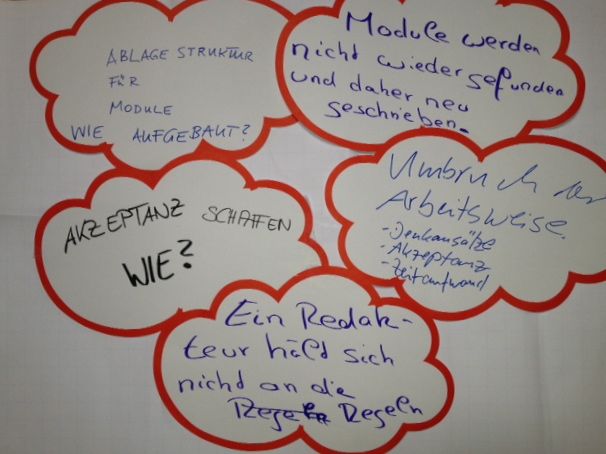 ABLAGE STRUKTUR
FÜR
MODULE
WIE AUFGEBAUT?
Module werden
nicht wiedergefunden
und daher neu
geschrieben.
AKZEPTANZ SCHAFFEN
WIE?
Umbruch der
Arbeitsweise.
- Denkansätze
- Akzeptanz
- Zeitaufwand
Ein Redak-
teur hält sich
nicht an die
Regeln